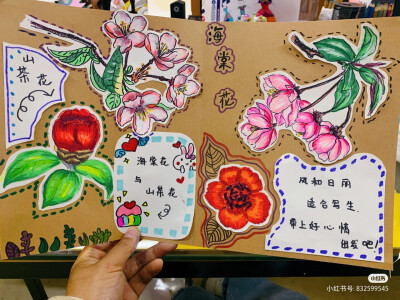 山
茶花
海
棠
花
海棠花
与
山茶花
风和日丽
适合写生
带上好心情
出发吧!
小红书
小红书号: 832599545